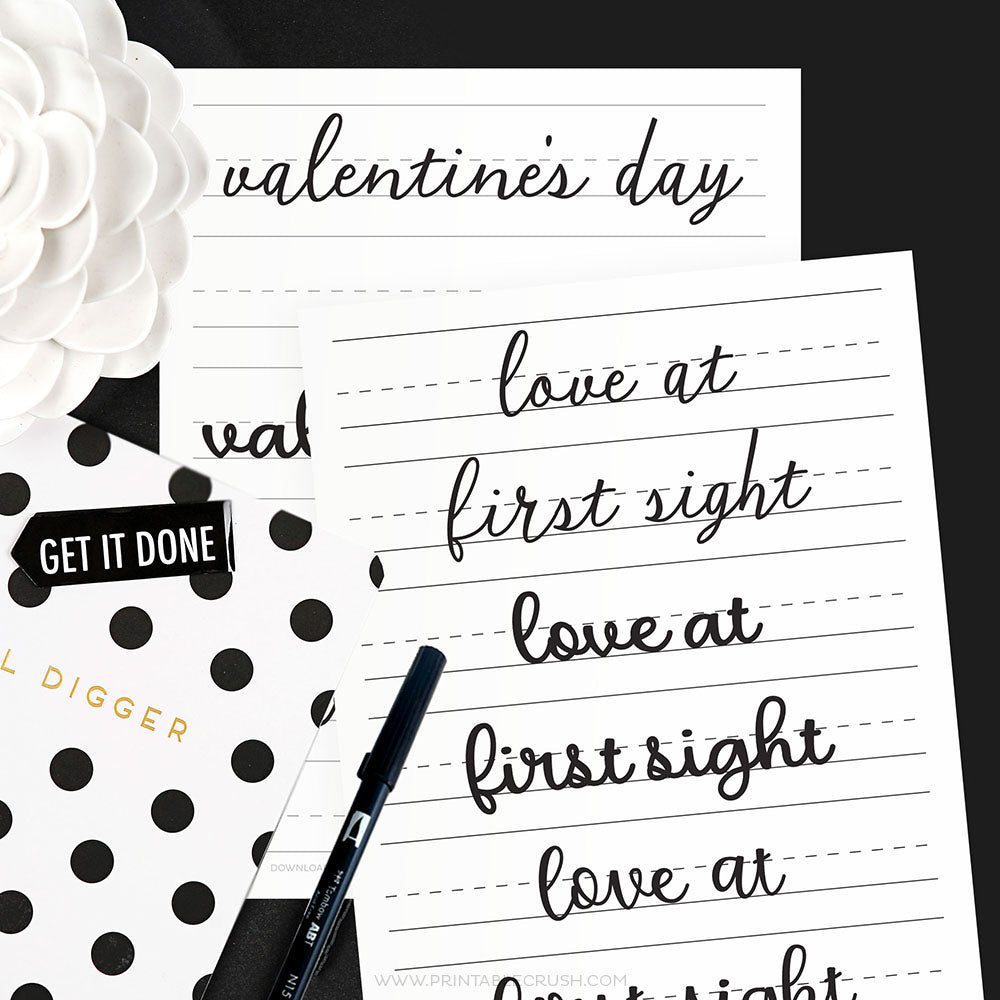 valentine's day
val
love at
first sight
love at
first sight
love at
first sight
GET IT DONE
L DIGGER
DOWNLOA
Tombow ABT
N15
WWW.PRINTABLECRUSH.COM